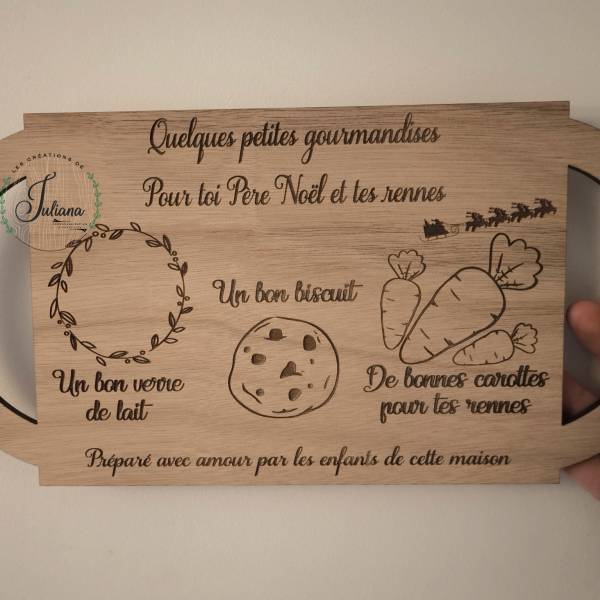 Quelques petites gourmandises
Pour toi Père Noël et tes rennes
LES CRÉATIONS DE
Juliana
Un bon biscuit
Un bon verre
de lait
De bonnes carottes
pour tes rennes
Préparé avec amour par les enfants de cette maison